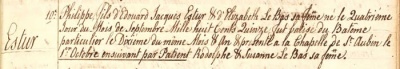 10. Philippe fils d'Edouard Jacques Estur & d'Elizabeth Le Bas sa fême né le Quatrième
Jour du Mois de Septembre Mille huit Cents Quinze fut batisé du Batême
Estur particulier le Dixième du même Mois & An & présenté à la Chapelle de St. Aubin le
1er Octobre ensuivant par Patient Rodolphe & Susanne Le Bas sa fême.